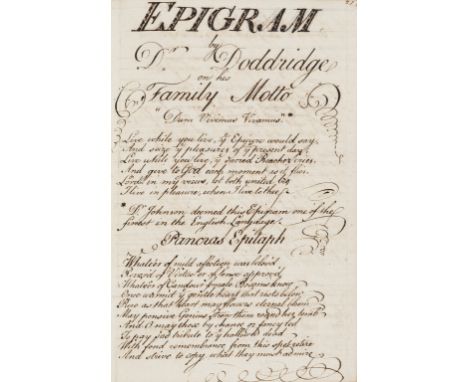 EPIGRAM
by
Dr Doddridge
on his
Family Motto
"Dum Vivimus Vivamus." *
Live while you live, ye Epicure would say,
And seize ye pleasures of ye present day,
Live while you live, ye Sacred Preacher cries,
And give to God each moment as it flies.
Lord! in my views, let both united be,
I live in pleasure, when I live to thee.
* Dr Johnson deemed this Epigram one of the
finest in the English Language.
Pancras Epitaph
Whate'er of mild affection was belov'd
Rever'd of Virtue or of sense approv'd
Whate'er of Candour female Bosoms know
Once warm'd ye gentle heart that rests below
Pure as that Heart may flowers eternal bloom
May pensive Genius from them round her tomb
And O may those by chance or fancy led
To pay sad tribute to ye hallow'd dead
With fond remembrance from this spot retire
And strive to copy what they most admire